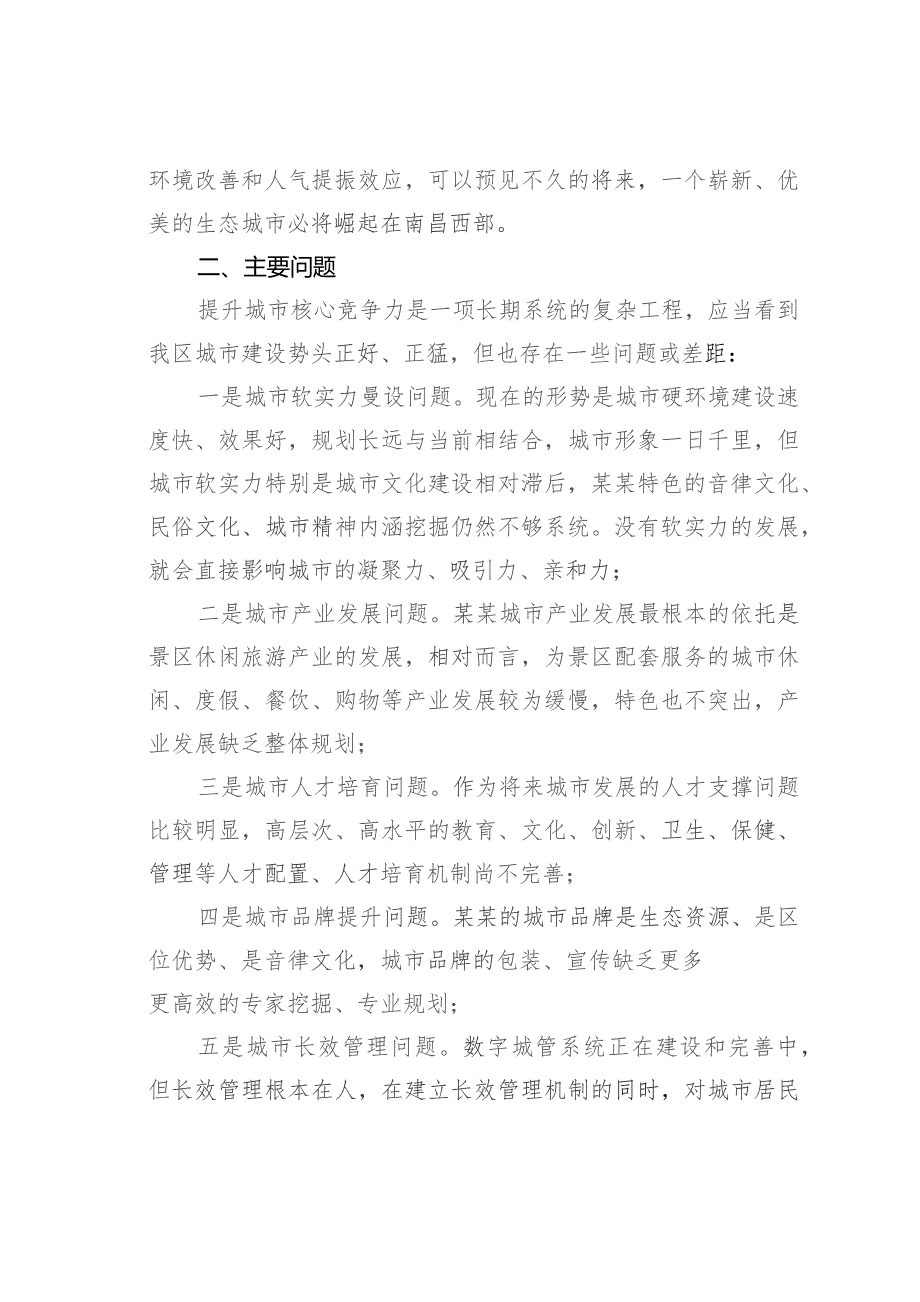 环境改善和人气提振效应，可以预见不久的将来，一个崭新、优
美的生态城市必将崛起在南昌西部。
二、主要问题
提升城市核心竞争力是一项长期系统的复杂工程，应当看到
我区城市建设势头正好、正猛，但也存在一些问题或差距：
一是城市软实力曼设问题。现在的形势是城市硬环境建设速
度快、效果好，规划长远与当前相结合，城市形象一日千里，但
城市软实力特别是城市文化建设相对滞后，某某特色的音律文化、
民俗文化、城市精神内涵挖掘仍然不够系统。没有软实力的发展，
就会直接影响城市的凝聚力、吸引力、亲和力；
二是城市产业发展问题。某某城市产业发展最根本的依托是
景区休闲旅游产业的发展，相对而言，为景区配套服务的城市休
闲、度假、餐饮、购物等产业发展较为缓慢，特色也不突出，产
业发展缺乏整体规划；
三是城市人才培育问题。作为将来城市发展的人才支撑问题
比较明显，高层次、高水平的教育、文化、创新、卫生、保健、
管理等人才配置、人才培育机制尚不完善；
四是城市品牌提升问题。某某的城市品牌是生态资源、是区
位优势、是音律文化，城市品牌的包装、宣传缺乏更多
更高效的专家挖掘、专业规划；
五是城市长效管理问题。数字城管系统正在建设和完善中，
但长效管理根本在人，在建立长效管理机制的同时，对城市居民